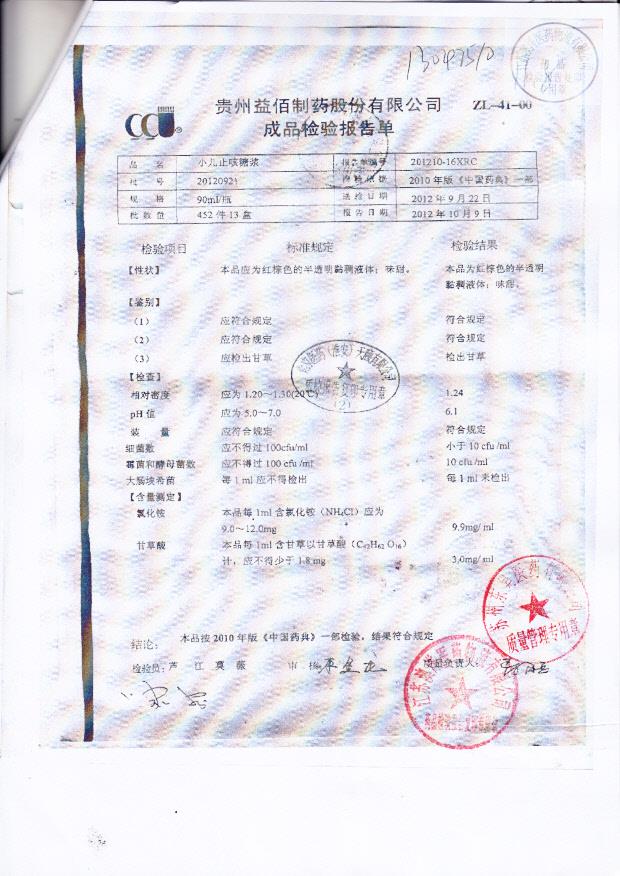 13047510
贵州益佰制药股份有限公司 ZL-41-00
成品检验报告单
品 名 小儿止咳糖浆 报告单编号 201210-16XRC
批 号 20120921 检验依据 2010年版《中国药典》一部
规 格 90ml/瓶 送检日期 2012年9月22日
批数量 452件13盒 报告日期 2012年10月9日
检验项目 标准规定 检验结果
【性状】 本品应为红棕色的半透明黏稠液体;味甜。 本品为红棕色的半透明
黏稠液体;味甜。
【鉴别】
(1) 应符合规定 符合规定
(2) 应符合规定 符合规定
(3) 应检出甘草 检出甘草
【检查】
相对密度 应为1.20~1.30(20℃) 1.24
pH值 应为5.0~7.0 6.1
装 量 应符合规定 符合规定
细菌数 应不得过100cfu/ml 小于10 cfu/ml
霉菌和酵母菌数 应不得过100 cfu/ml 10 cfu/ml
大肠埃希菌 每1ml应不得检出 每1ml未检出
【含量测定】
氯化铵 本品每1ml含氯化铵(NH₄Cl)应为
9.0~12.0mg 9.9mg/ml
甘草酸 本品每1ml含甘草以甘草酸(C₄₂H₆₂O₁₆)
计,应不得少于1.8mg 3.0mg/ml
结论: 本品按2010年版《中国药典》一部检验,结果符合规定
检验员:芦 江 莫 薇 审核 质量负责人
质量管理专用章